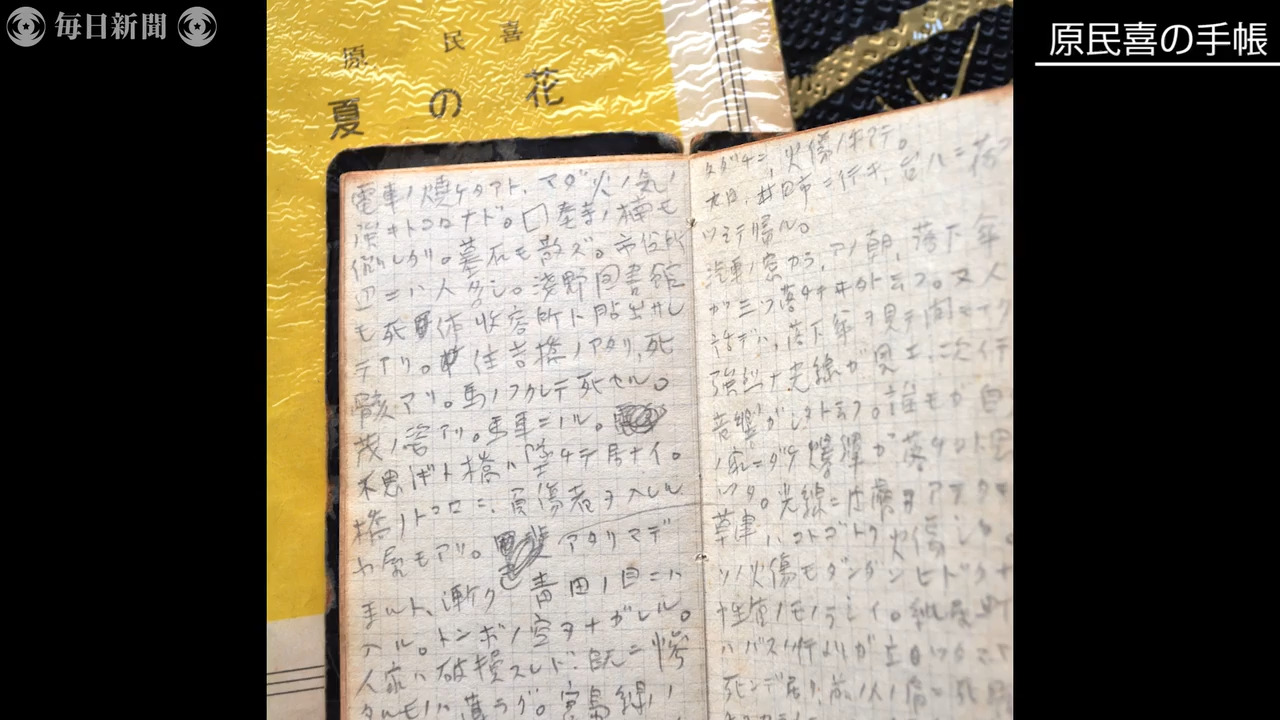 毎日新聞
原民喜の手帳
原 民 喜
夏 の 花
電車ノ焼ケタアト、マダ火ノ気ノ
強キトコロナド。□泰寺ノ楠モ
倒レタリ。墓石モ散ズ。市役所
辺ニハ人名シ。浅野図書館
モ死体収容所ト貼出サレ
テアリ。住吉橋ノアタリ、死
骸アリ。馬ノフクレテ死セル。
茂ノ姿アリ。馬車ニノル。
不思ギト橋ハ墜チテ居ナイ。
橋ノトコロニ、負傷者ヲ入レル
小屋モアリ。アタリマデ
来ルト、漸ク青田ノ目ニハ
入ル。トンボノ空ヲナガレル。
人家ハ破損スレド既ニ惨
タルモノハ薄ラグ。宮島線ノ
タダチニ、火傷ノ手アテ。
廿日市ニ行キ、
ツミテ帰ル。
汽車ノ窓カラ、アノ朝、落下傘
ガ三ツ落チヰタト云フ。又人
話デハ、落下傘ヲ見テ間モナク
強烈ナ光線ガ見エ、次イデ
音響ガシタト云フ。誰モガ自
ノ家ニダケ爆弾ガ落チタト思
ツタ。光線ニ皮膚ヲアテタモ
草津ハコトゴトク火傷シタ。
ソノ火傷モダンダンヒドクナ
性質ノモノラシイ。紙屋町
ハバスノ行
死ンデ居リ、前ノ人ノ肩ニ